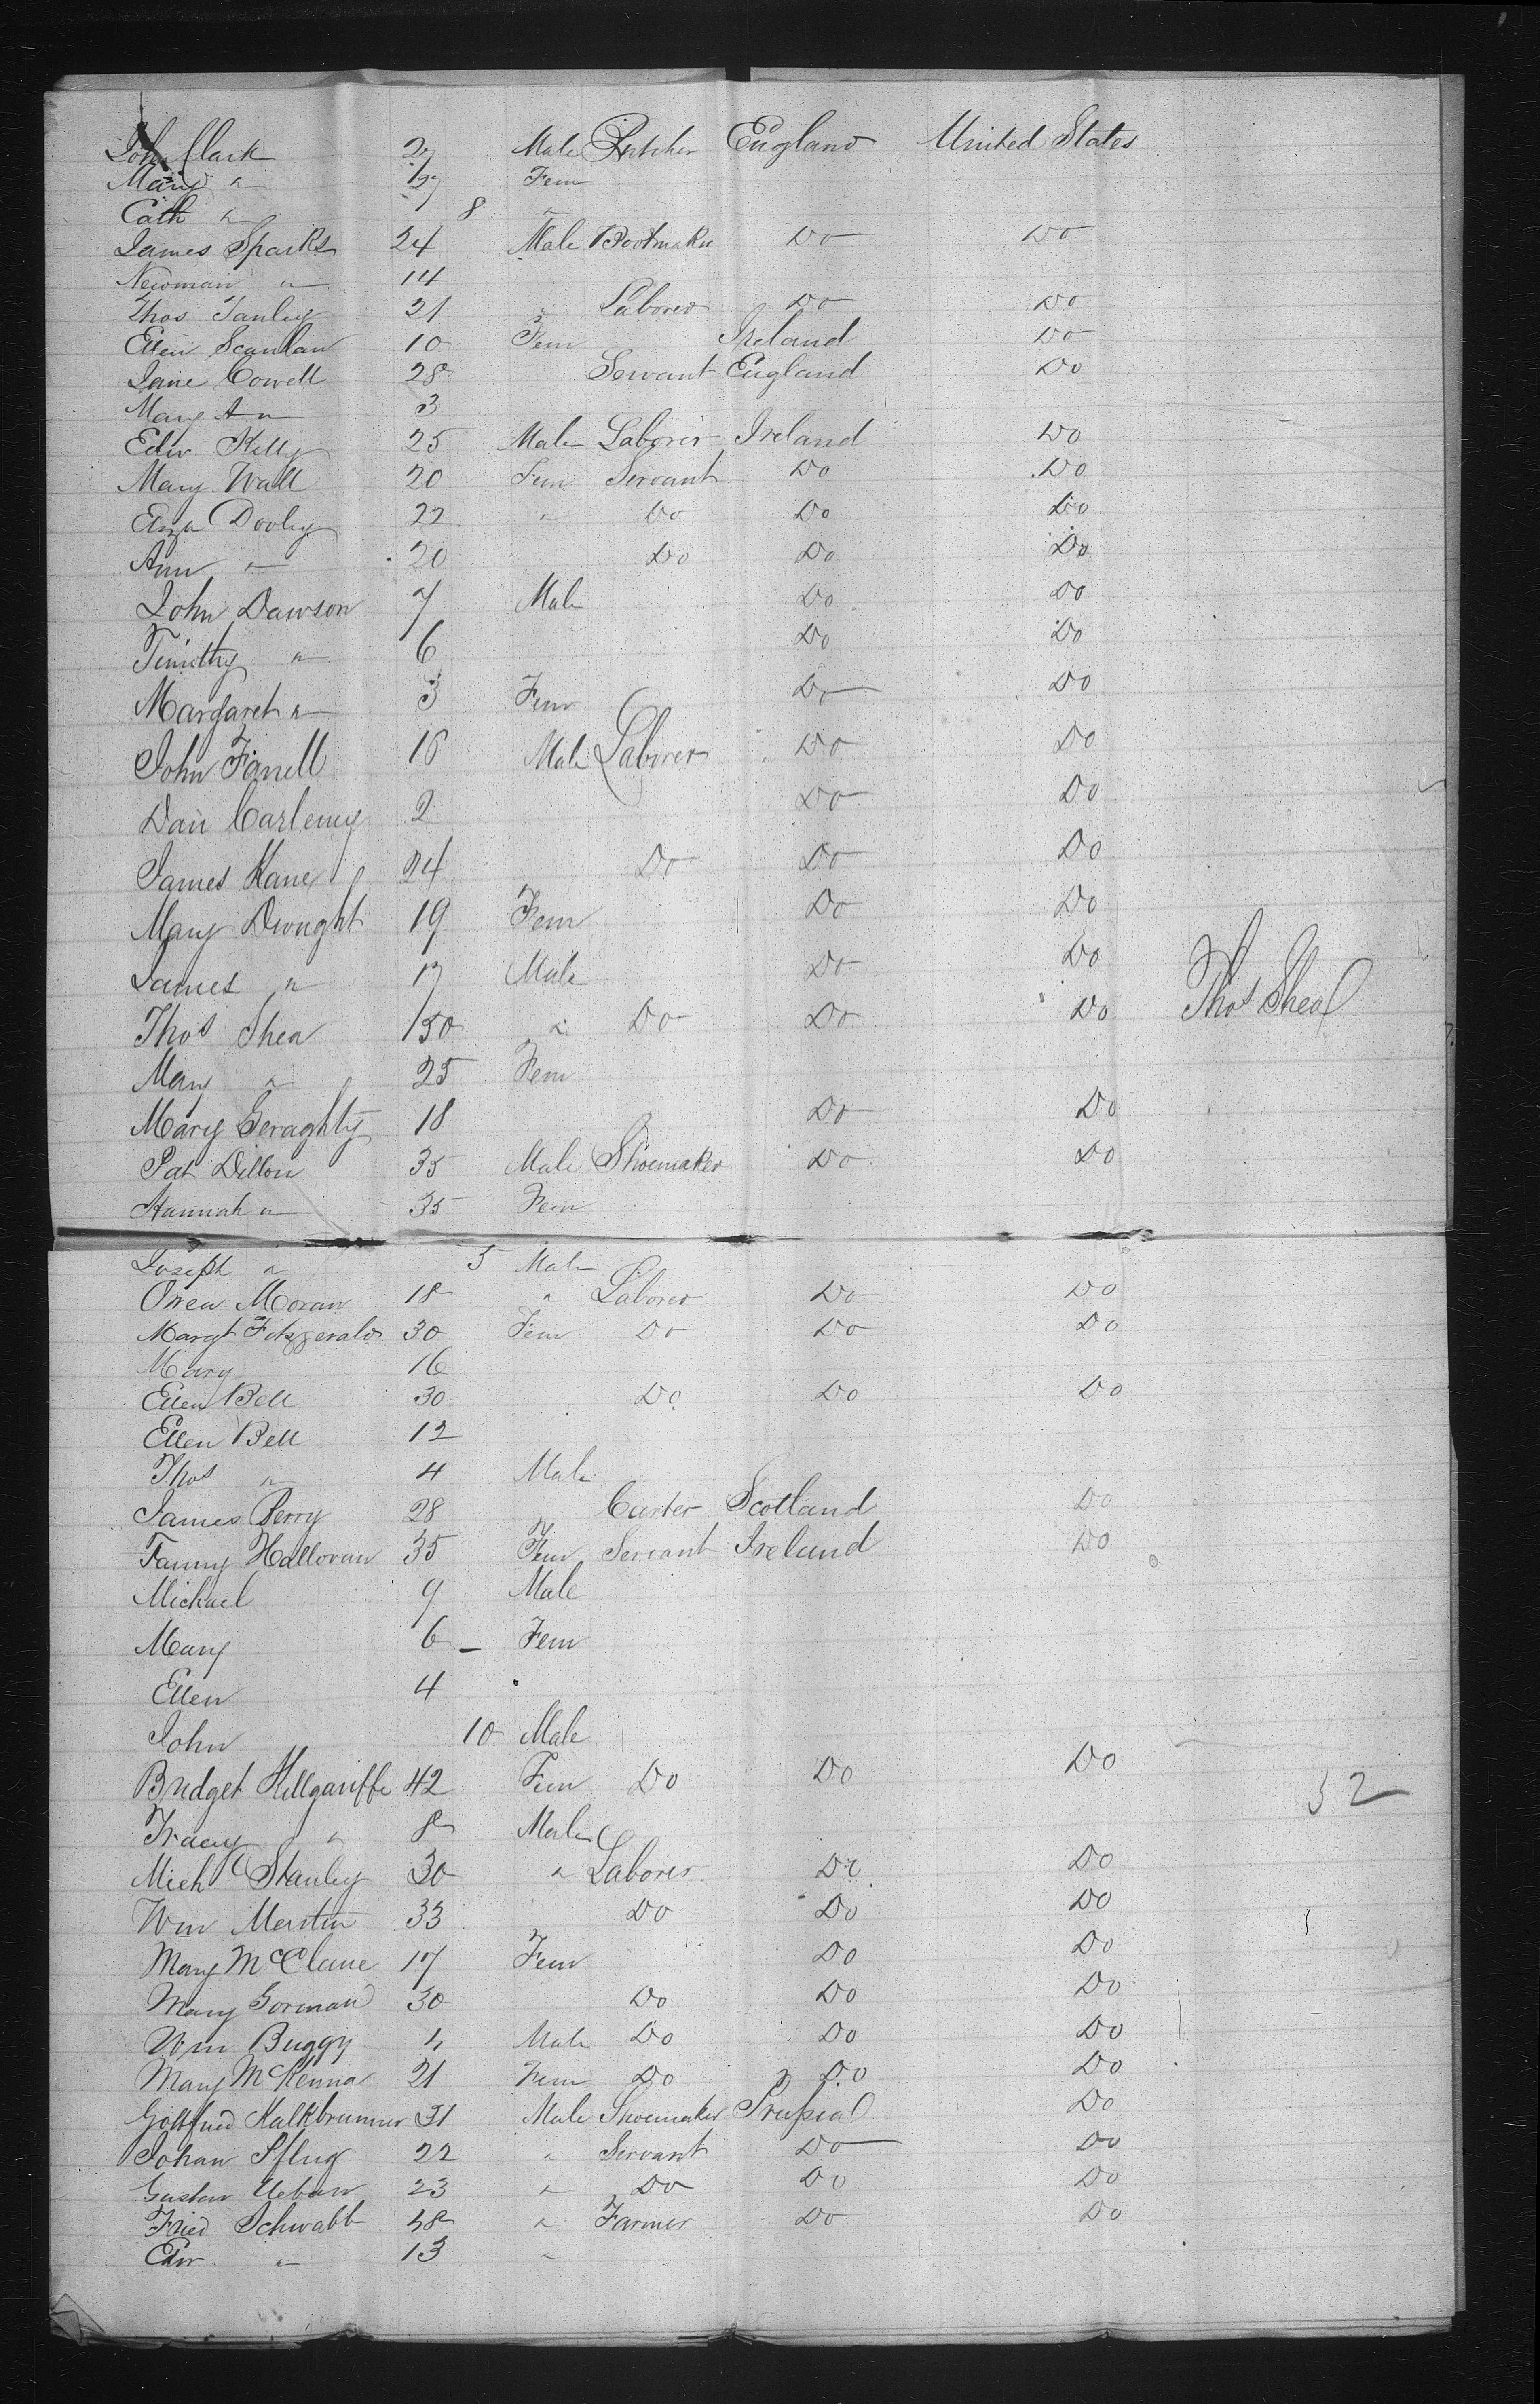 John Clark 27 Male Butcher England United States
Mary " 27 Fem
Cath " 8 "
James Sparks 24 Male Bootmaker Do Do
Newman " 14
Thos Tanley 21 " Laborer Do Do
Ellen Scanlan 10 Fem Ireland Do
Jane Cowell 28 Servant England Do
Mary A " 3
Edw Kelly 25 Male Laborer Ireland Do
Mary Wall 20 Fem Servant Do Do
Eliza Dooley 22 " Do Do Do
Ann " 20 Do Do Do
John Dawson 7 Male Do Do
Timothy " 6 Do Do
Margaret " 3 Fem Do Do
John Farrell 16 Male Laborer Do Do
Dan 2 Do Do
James Kane 24 Do Do Do
Mary Dwught 19 Fem Do Do
James " 17 Male Do Do
Thos Shea 30 " Do Do Do Thos Shea
Mary " 25 Fem
Mary Geraghty 18 Do Do
Pat Dillon 35 Male Shoemaker Do Do
Hannah " 35 Fem
Joseph " 5 Male
Owen Moran 18 " Laborer Do Do
Margt Fitzgerald 30 Fem Do Do Do
Mary 16
Ellen Bell 30 Do Do Do
Ellen Bell 12
Thos " 4 Male
James Perry 28 " Carter Scotland Do
Fanny Halloran 35 Fem Servant Ireland Do
Michael 9 Male
Mary 6 - Fem
Ellen 4
John 10 Male
Bridget Killgariffe 42 Fem Do Do Do
Tracy " 8 Male 52
Michl Stanley 30 " Laborer Do Do
Wm 33 Do Do Do
Mary McClane 17 Fem Do Do
Mary Gorman 30 Do Do Do
Wm Buggy Male Do Do Do
Mary McKenna 21 Fem Do Do Do
Gottfried Kalkbrunner 31 Male Shoemaker Prussia Do
Johan Pflug 22 " Servant Do Do
Gustav Urban 23 " Do Do Do
Fried Schwabb 48 " Farmer Do Do
Edw " 13 "